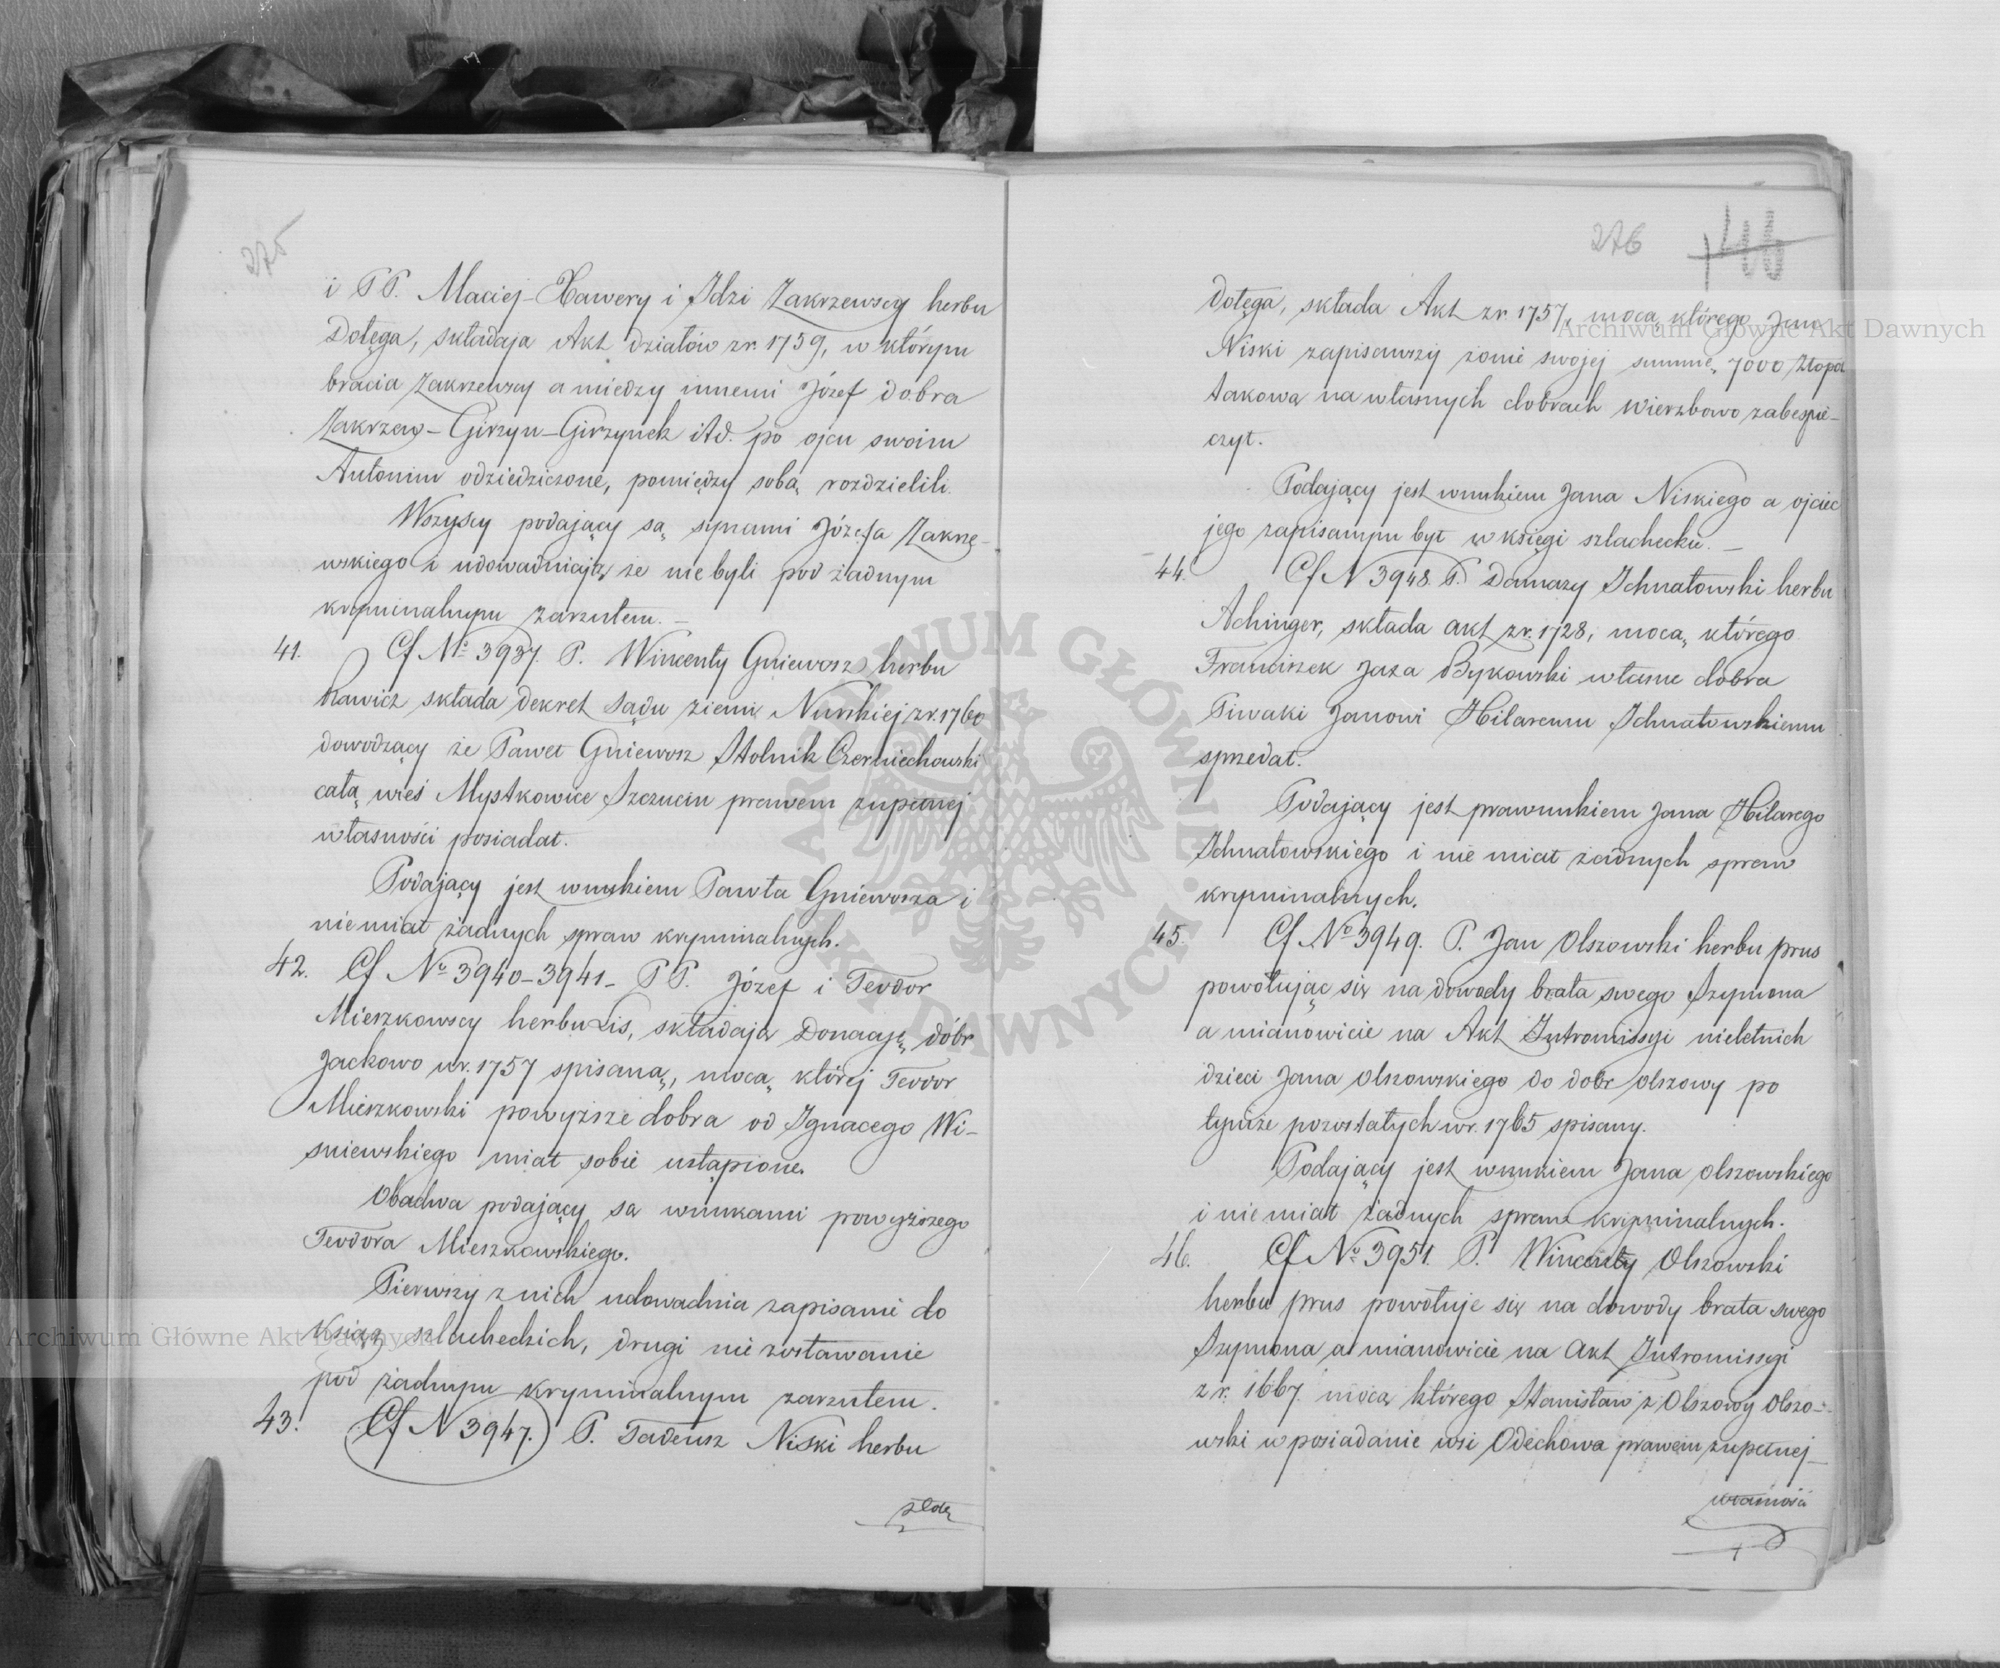 275
i PP. Maciej-Xawery i Idzi Zakrzewscy herbu
Dołęga, składają Akt działów z r. 1759, w którym
bracia Zakrzewscy a miedzy innemi Józef dobra
Zakrzew-Girzyn-Girzynek itd. po ojcu swoim
Antonim odziedziczone, pomiędzy sobą rozdzielili.
Wszyscy podający są synami Józefa Zakrze-
wskiego i udowadniają że nie byli pod żadnym
kryminalnym zarzutem. -
41. Cf No 3937. P. Wincenty Gniewosz herbu
Rawicz składa dekret Sądu ziemi Nurskiej z r. 1760
dowodzący że Paweł Gniewosz Stolnik Czerniechowski
całą wieś Mystkowice Szczucin prawem zupełnej
własności posiadał.
Podający jest wnukiem Pawła Gniewosza i
nie miał żadnych spraw kryminalnych.
42. Cf No 3940-3941- PP. Józef i Teodor
Mieszkowscy herbu Lis, składają Donacyę dóbr
Jackowo w r. 1757 spisaną, mocą której Teodor
Mieszkowski powyższe dobra od Ignacego Wi-
sniewskiego miał sobie ustąpione.
Obadwa podający są wnukami powyższego
Teodora Mieszkowskiego.
Pierwszy z nich udowadnia zapisanie do
Ksiąg szlacheckich, drugi nie zostawanie
pod żadnym kryminalnym zarzutem.
43. Cf N 3947. P. Tadeusz Niski herbu
276
Dołęga, składa Akt z r. 1757, mocą którego Jan
Niski zapisawszy żonie swojej summę 7000 Złopol
takową na własnych dobrach Wierzbowo zabespie-
czył.
Podający jest wnukiem Jana Niskiego a ojciec
jego zapisanym był w księgi szlacheckie. -
44. Cf N 3948. P. Damazy Ichnatowski herbu
Achinger, składa akt z r. 1728, mocą którego
Franciszek Jaxa Bykowski własne dobra
Piwaki Janowi Hilaremu Ichnatowskiemu
sprzedał.
Podający jest prawnukiem Jana Hilarego
Ichnatowskiego i nie miał żadnych spraw
kryminalnych.
45. Cf No 3949. P. Jan Olszowski herbu prus
powołując się na dowody brata swego Szymona
a mianowicie na Akt Intromissyi nieletnich
dzieci Jana Olszowskiego do dobr Olszowy po
tymże pozostałych w r. 1765 spisany.
Podający jest wnukiem Jana Olszowskiego
i nie miał żadnych spraw kryminalnych.
46. Cf No 3951. P. Wincenty Olszowski
herbu prus powołuje się na dowody brata swego
Szymona a mianowicie na Akt Intromissyi
z r. 1667. mocą którego Stanisław z Olszowy Olszo-
wski w posiadanie wsi Odechowa prawem zupełnej
Archiwum Główne Akt Dawnych
Archiwum Główne Akt Dawnych
ARCHIWUM GŁÓWNE · AKT DAWNYCH ·